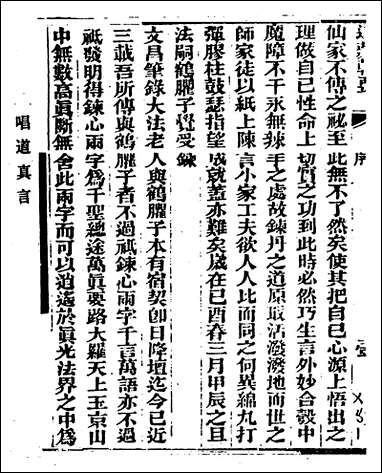 序
仙家不傳之祕至此無不了然矣使其把自己心源上悟出之
理做自己性命上切實之功到此時必然巧生言外妙合彀中
魔障不干永無棘手之處故鍊丹之道原最活潑潑地而世之
師家徒以紙上陳言小家工夫欲人人比而同之何異綿九打
彈膠柱鼓瑟指望成就蓋亦難矣歲在己酉春三月甲辰之旦
法嗣鶴臞子覺受錄
文昌筆錄大法老人與鶴臞子本有宿契卽日降壇迄今已近
三載吾所傳與鶴臞子者不過祇鍊心兩字千言萬語亦不過
祇發明得鍊心兩字爲千聖總途萬眞要路大羅天上玉京山
中無數高眞斷無舍此兩字而可以逍遙於眞光法界之中爲
唱道真言